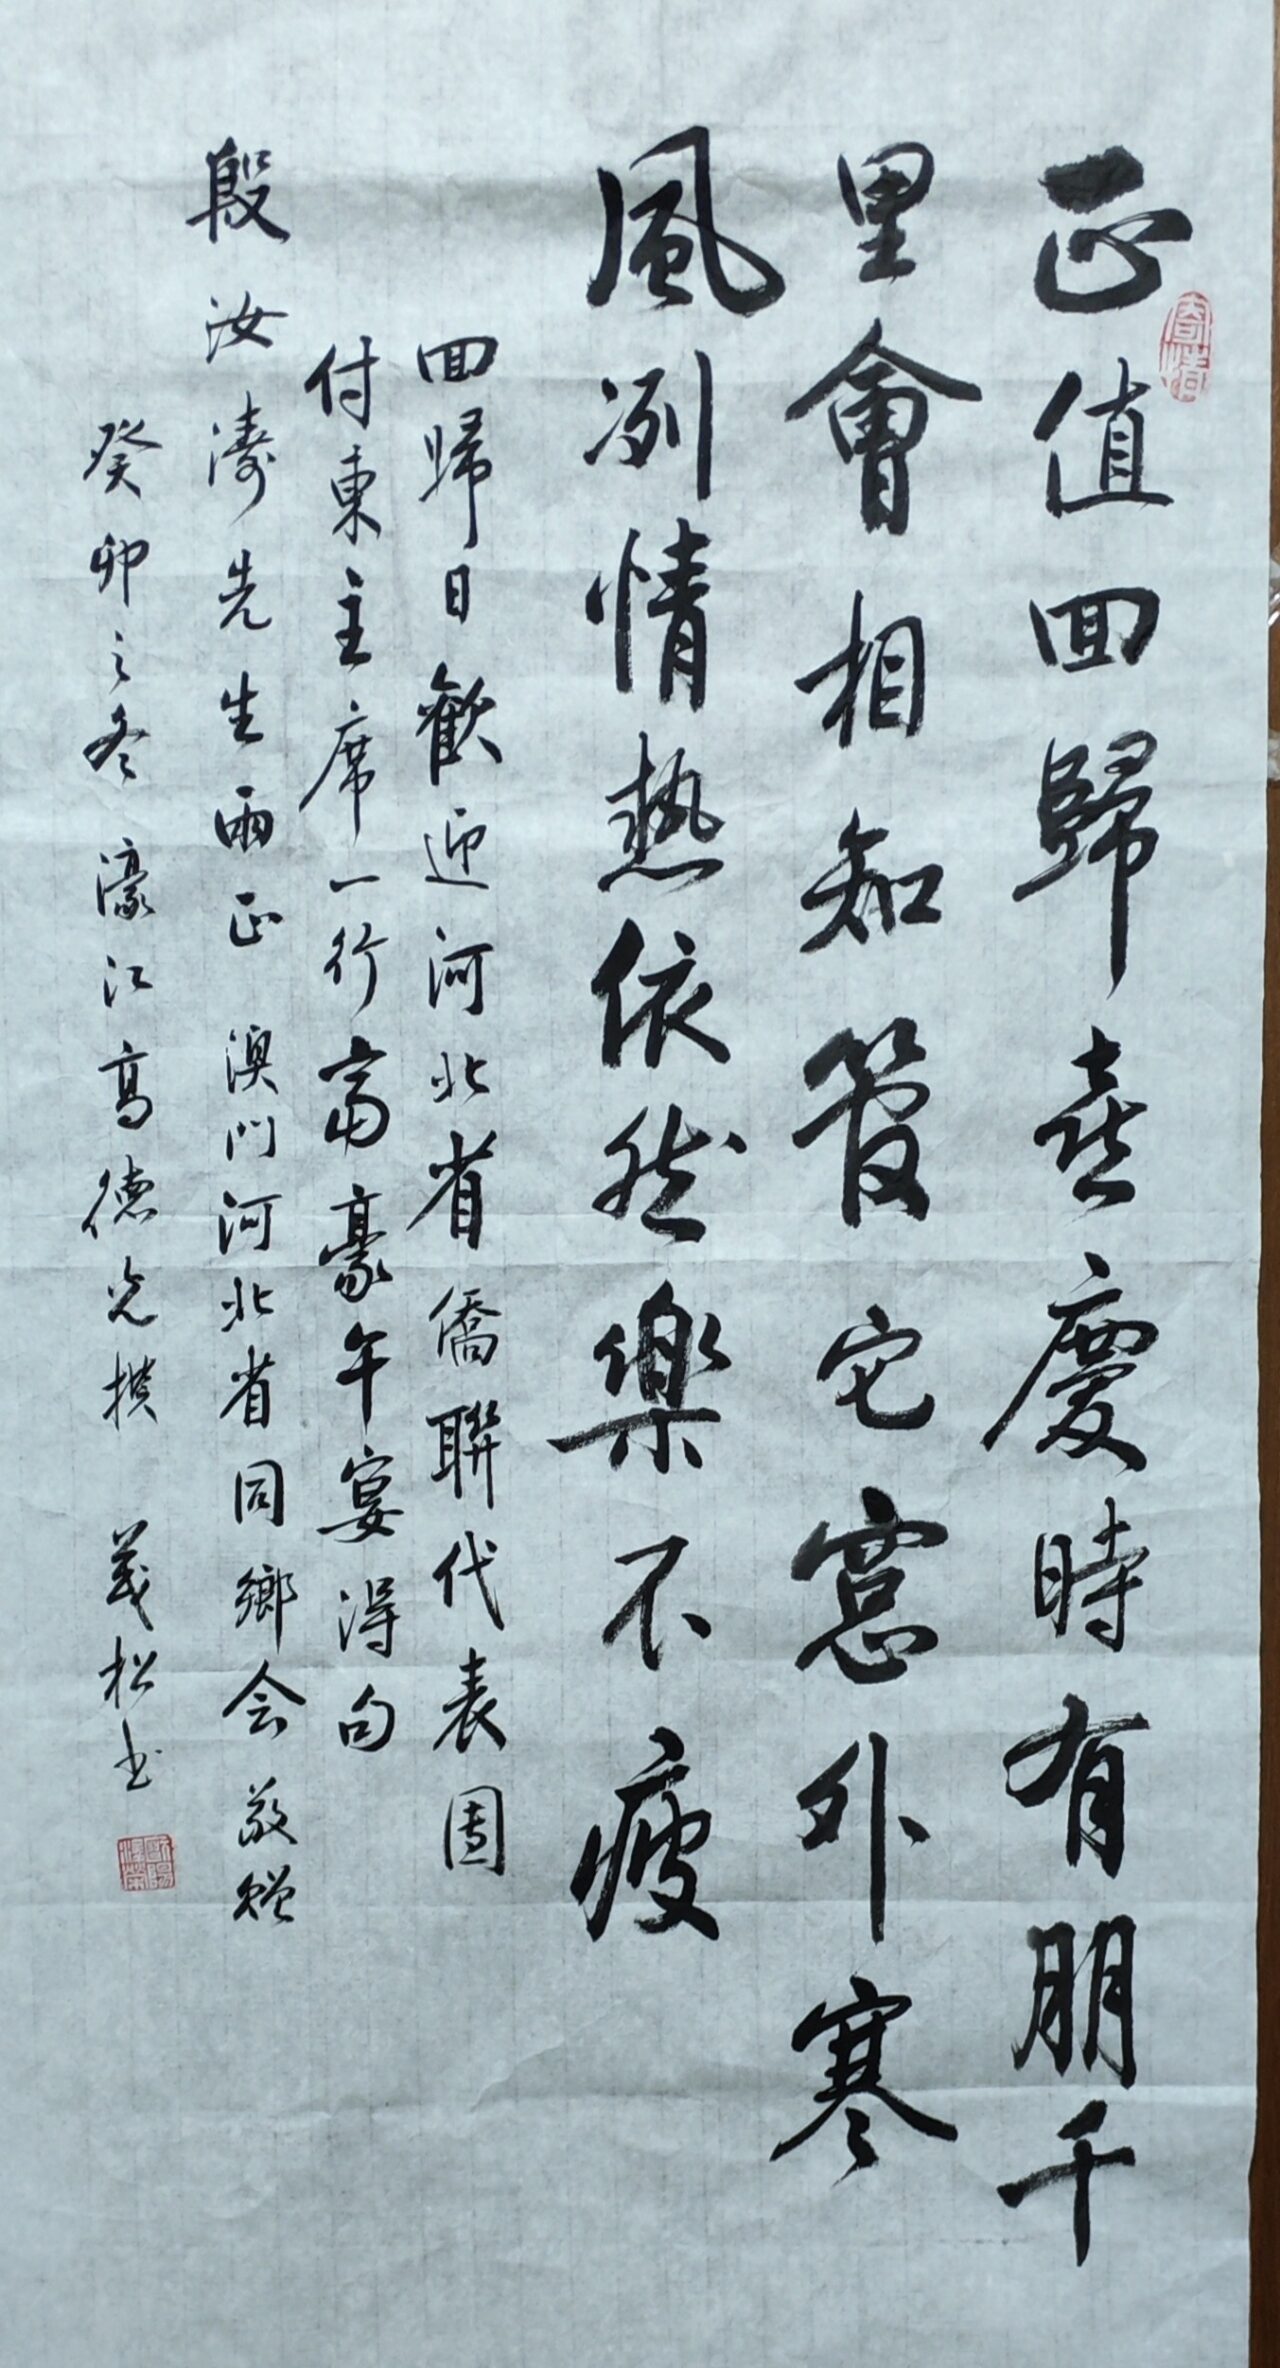 正值回歸喜慶時有朋千
里會相知管它窓外寒
風冽情熱依然樂不疲
回歸日歡迎河北省僑聯代表團
付東主席一行富豪午宴得句
殷汝濤先生雨正 澳門河北省同鄉会敬贈
癸卯之冬濠江高德光撰 義松书
寄情